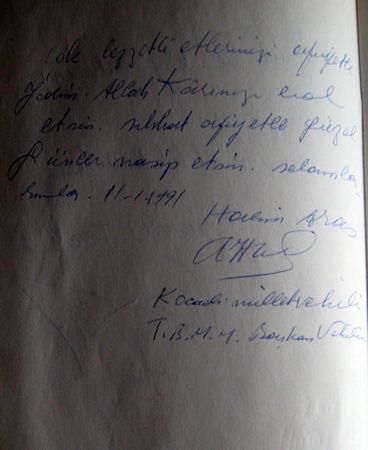 çok lezzetli etlerinizi afiyetle
Yedim. Allah Kârınızı bol
etsin. sıhhat afiyetle güzel
günler nasip etsin. selamla-
rımla. 11-1-1991
Halim Aras
Kocaeli milletvekili
T.B.M.M. Başkan Vekili